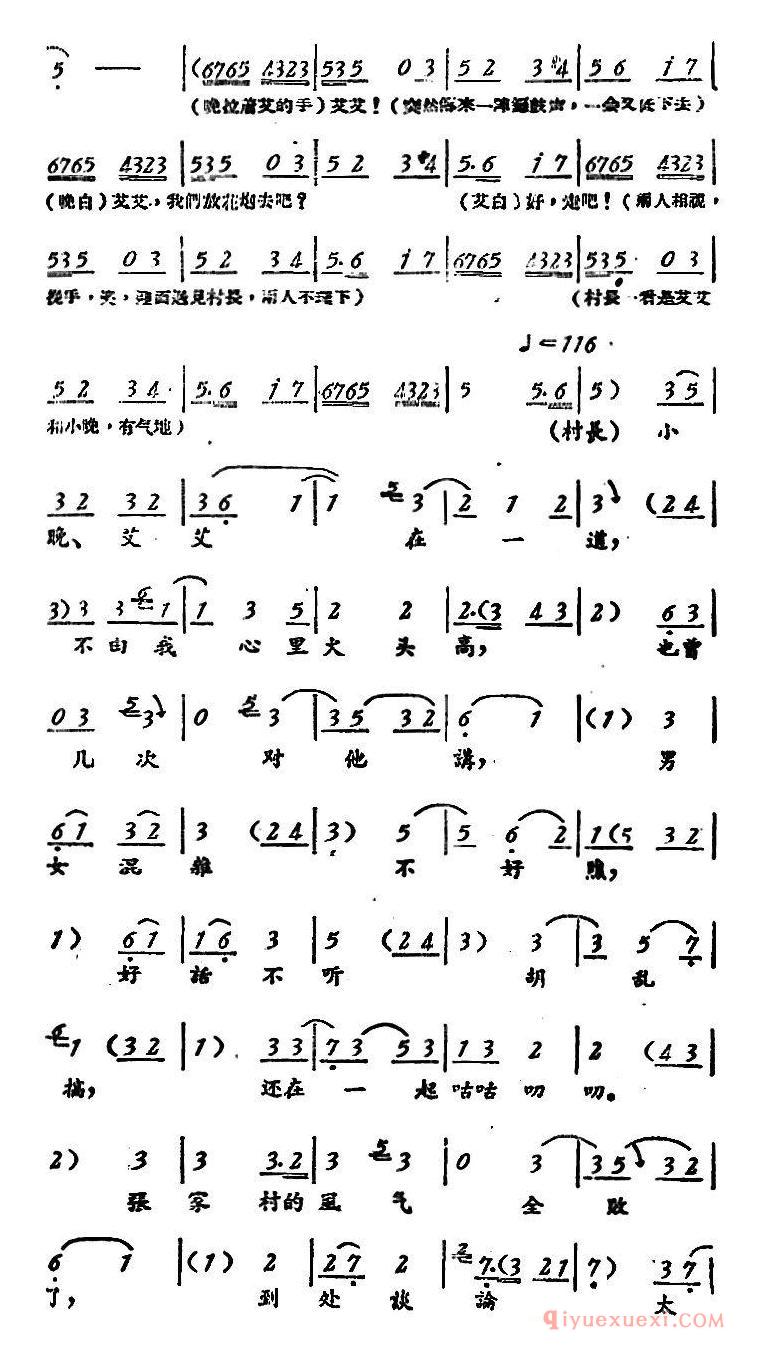 5 — | (6765 4323 | 535 0 3 | 5 2 3 #4 | 5 6 i 7 |
(晚拉着艾的手) 艾艾! (突然傳来一陣鑼鼓声,一会又低下去)
6765 4323 | 535 0 3 | 5 2 3 #4 | 5.6 i 7 | 6765 4323 |
(晚白) 艾艾,我們放花炮去吧? (艾白) 好,走吧! (兩人相視,
535 0 3 | 5 2 3 4 | 5.6 i 7 | 6765 4323 | 535 0 3 |
挽手,笑,迎面遇見村長,兩人不理下) (村長一看是艾艾
♩=116
5 2 3 4 | 5.6 i 7 | 6765 4323 | 5 5.6 | 5) 3 5 |
和小晚,有气地) (村長) 小
3 2 3 2 | 3 6 1 | 1 5 3 | 2 1 2 | 3 (2 4 |
晚、艾 艾 在 一 道,
3) 3 3 6 1 | 1 3 5 | 2 2 | 2.(3 4 3 | 2) 6 3 |
不 由 我 心 里 火 头 高, 也曾
0 3 5 3 | 0 5 3 | 3 5 3 2 | 6 1 | (1) 3 |
几 次 对 他 講, 男
6 1 3 2 | 3 (2 4 | 3) 5 | 5 6 2 | 1 (5 3 2 |
女 混 雜 不 好 瞧,
1) 6 1 | 1 6 3 | 5 (2 4 | 3) 3 | 3 5 7 |
好 話 不 听 胡 乱
6 1 (3 2 | 1) 3 3 | 7 3 5 3 | 1 3 2 | 2 (4 3 |
搞, 还在 一 起 咕咕 叨 叨。
2) 3 | 3 3.2 | 3 5 3 | 0 3 | 3 5 3 2 |
張 家 村的 風 气 全 敗
6 1 | (1) 2 | 2 7 2 | 2 7.(3 2 1 | 7) 3 7 |
了, 到 处 談 論 太
qiyuexuexi.COM